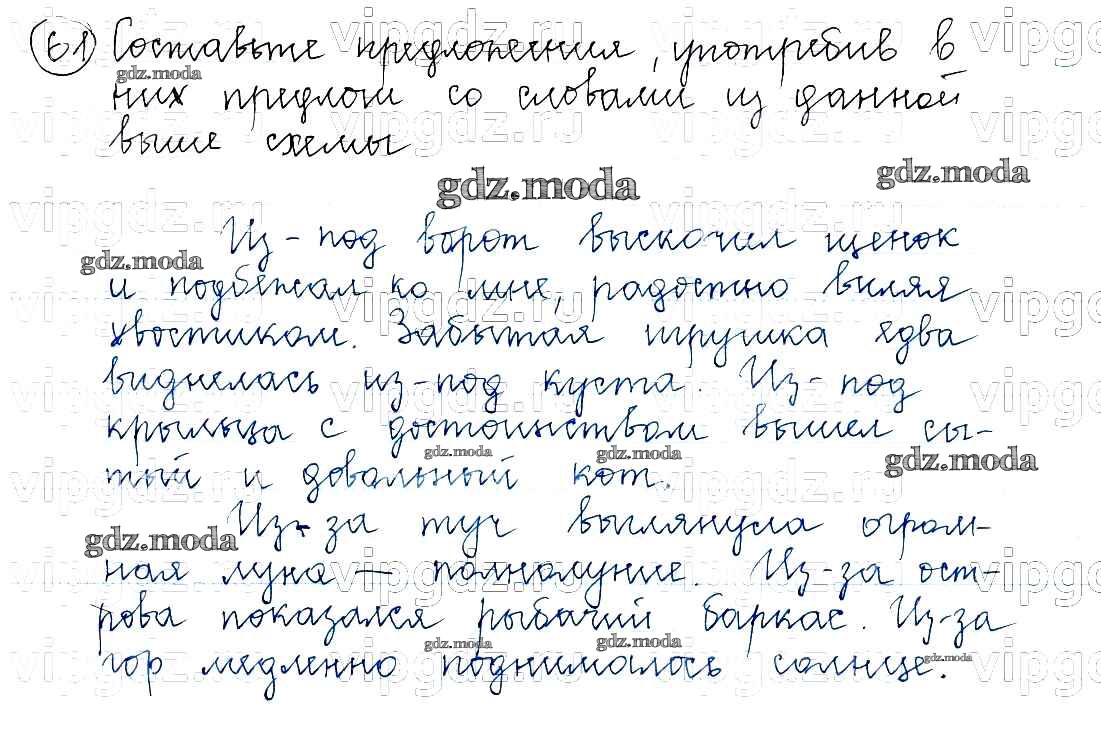 61 Составьте предложения, употребив в
них предлоги со словами из данной
выше схемы
Из-под ворот выскочил щенок
и подбежал ко мне, радостно виляя
хвостиком. Забытая игрушка едва
виднелась из-под куста. Из-под
крыльца с достоинством вышел сы-
тый и довольный кот.
Из-за туч выглянула огром-
ная луна — полнолуние. Из-за ост-
рова показался рыбачий баркас. Из-за
гор медленно поднималось солнце.